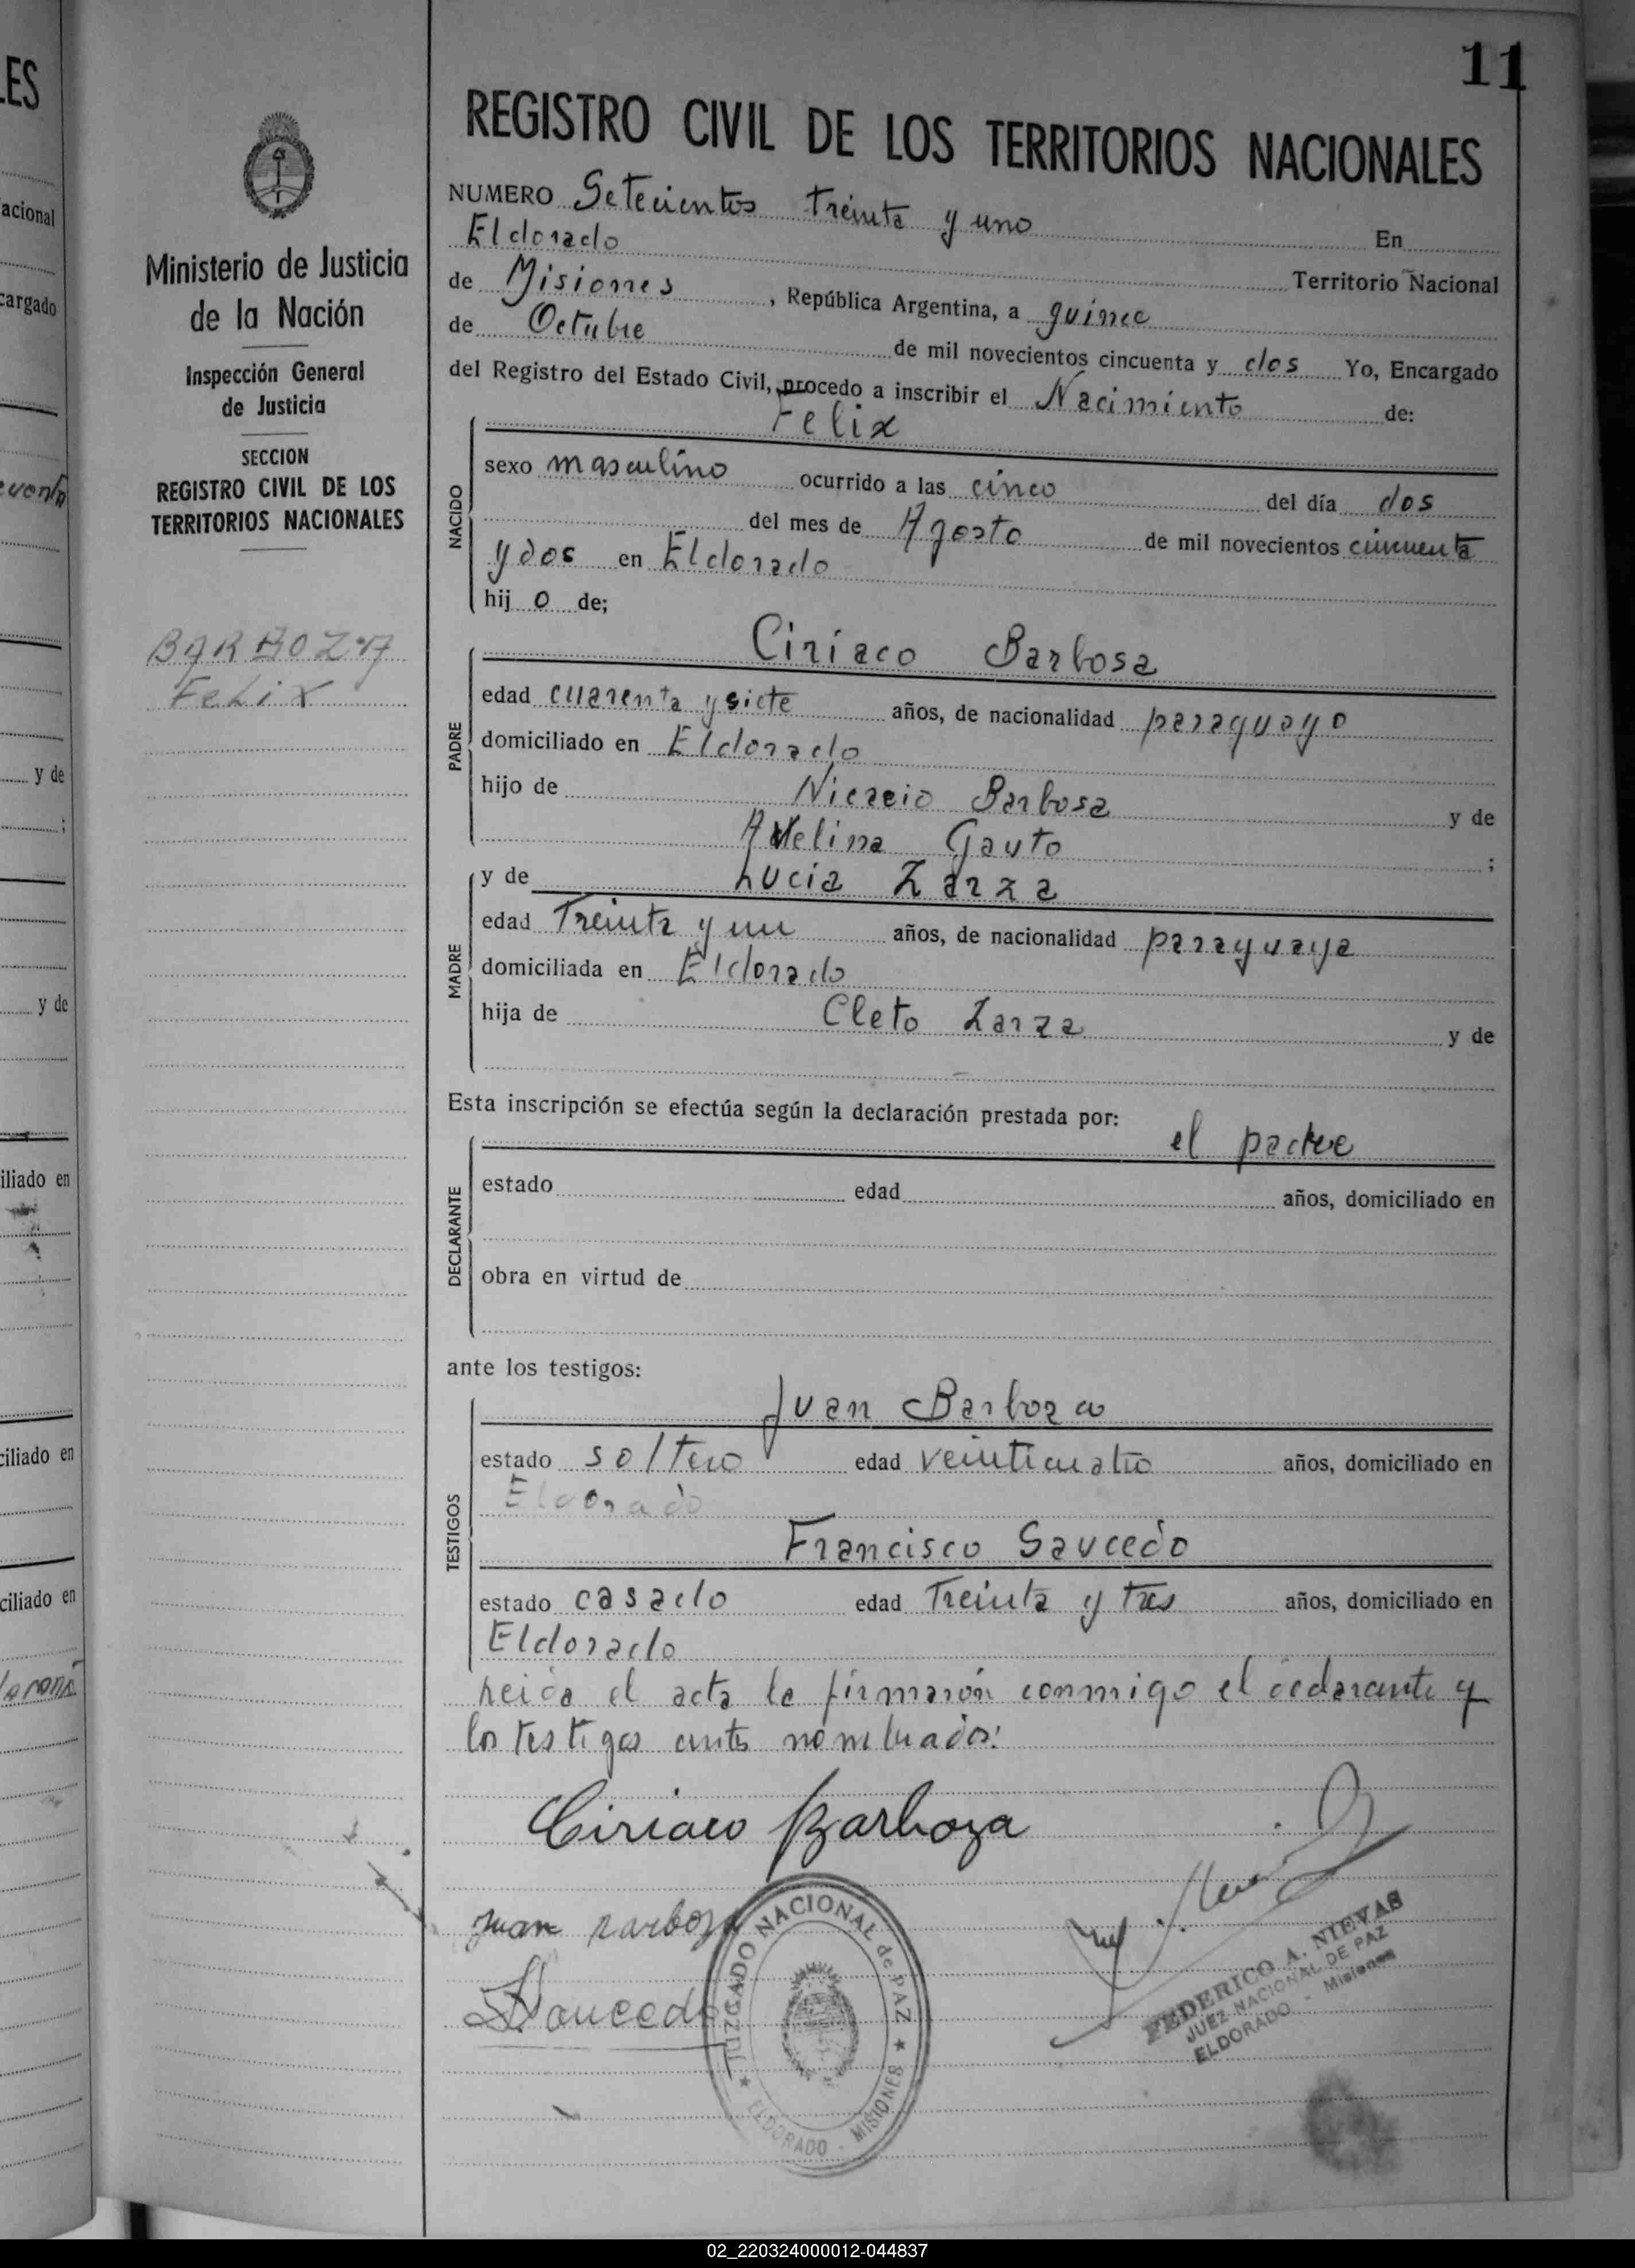 11
REGISTRO CIVIL DE LOS TERRITORIOS NACIONALES
NUMERO Setecientos treinta y uno En
Eldorado Territorio Nacional
de Misiones, República Argentina, a quince
de Octubre de mil novecientos cincuenta y dos Yo, Encargado
del Registro del Estado Civil, procedo a inscribir el Nacimiento de:
Felix
NACIDO
sexo masculino ocurrido a las cinco del día dos
del mes de Agosto de mil novecientos cincuenta
y dos en Eldorado
hij o de;
Ciriaco Barbosa
PADRE
edad cuarenta y siete años, de nacionalidad paraguayo
domiciliado en Eldorado
hijo de Nicacio Barbosa y de
Avelina Gauto ;
y de Lucia Zarza
MADRE
edad Treinta y un años, de nacionalidad paraguaya
domiciliada en Eldorado
hija de Cleto Zarza y de
Esta inscripción se efectúa según la declaración prestada por:
el padre
DECLARANTE
estado edad años, domiciliado en
obra en virtud de
ante los testigos:
Juan Barboza
TESTIGOS
estado soltero edad veinticuatro años, domiciliado en
Eldorado
Francisco Saucedo
estado casado edad Treinta y tres años, domiciliado en
Eldorado
Leida el acta la firmarón conmigo el declarante y
los testigos antes nombrados:
Ciriaco Barboza
Juan Barboza
Saucedo
JUZGADO NACIONAL de PAZ
ELDORADO - MISIONES
FEDERICO A. NIEVAS
JUEZ NACIONAL DE PAZ
ELDORADO - Misiones
Ministerio de Justicia
de la Nación
Inspección General
de Justicia
SECCION
REGISTRO CIVIL DE LOS
TERRITORIOS NACIONALES
BARBOZA
FELIX
ES
acional
cargado
y de
;
y de
iliado en
ciliado en
ciliado en
02_220324000012-044837